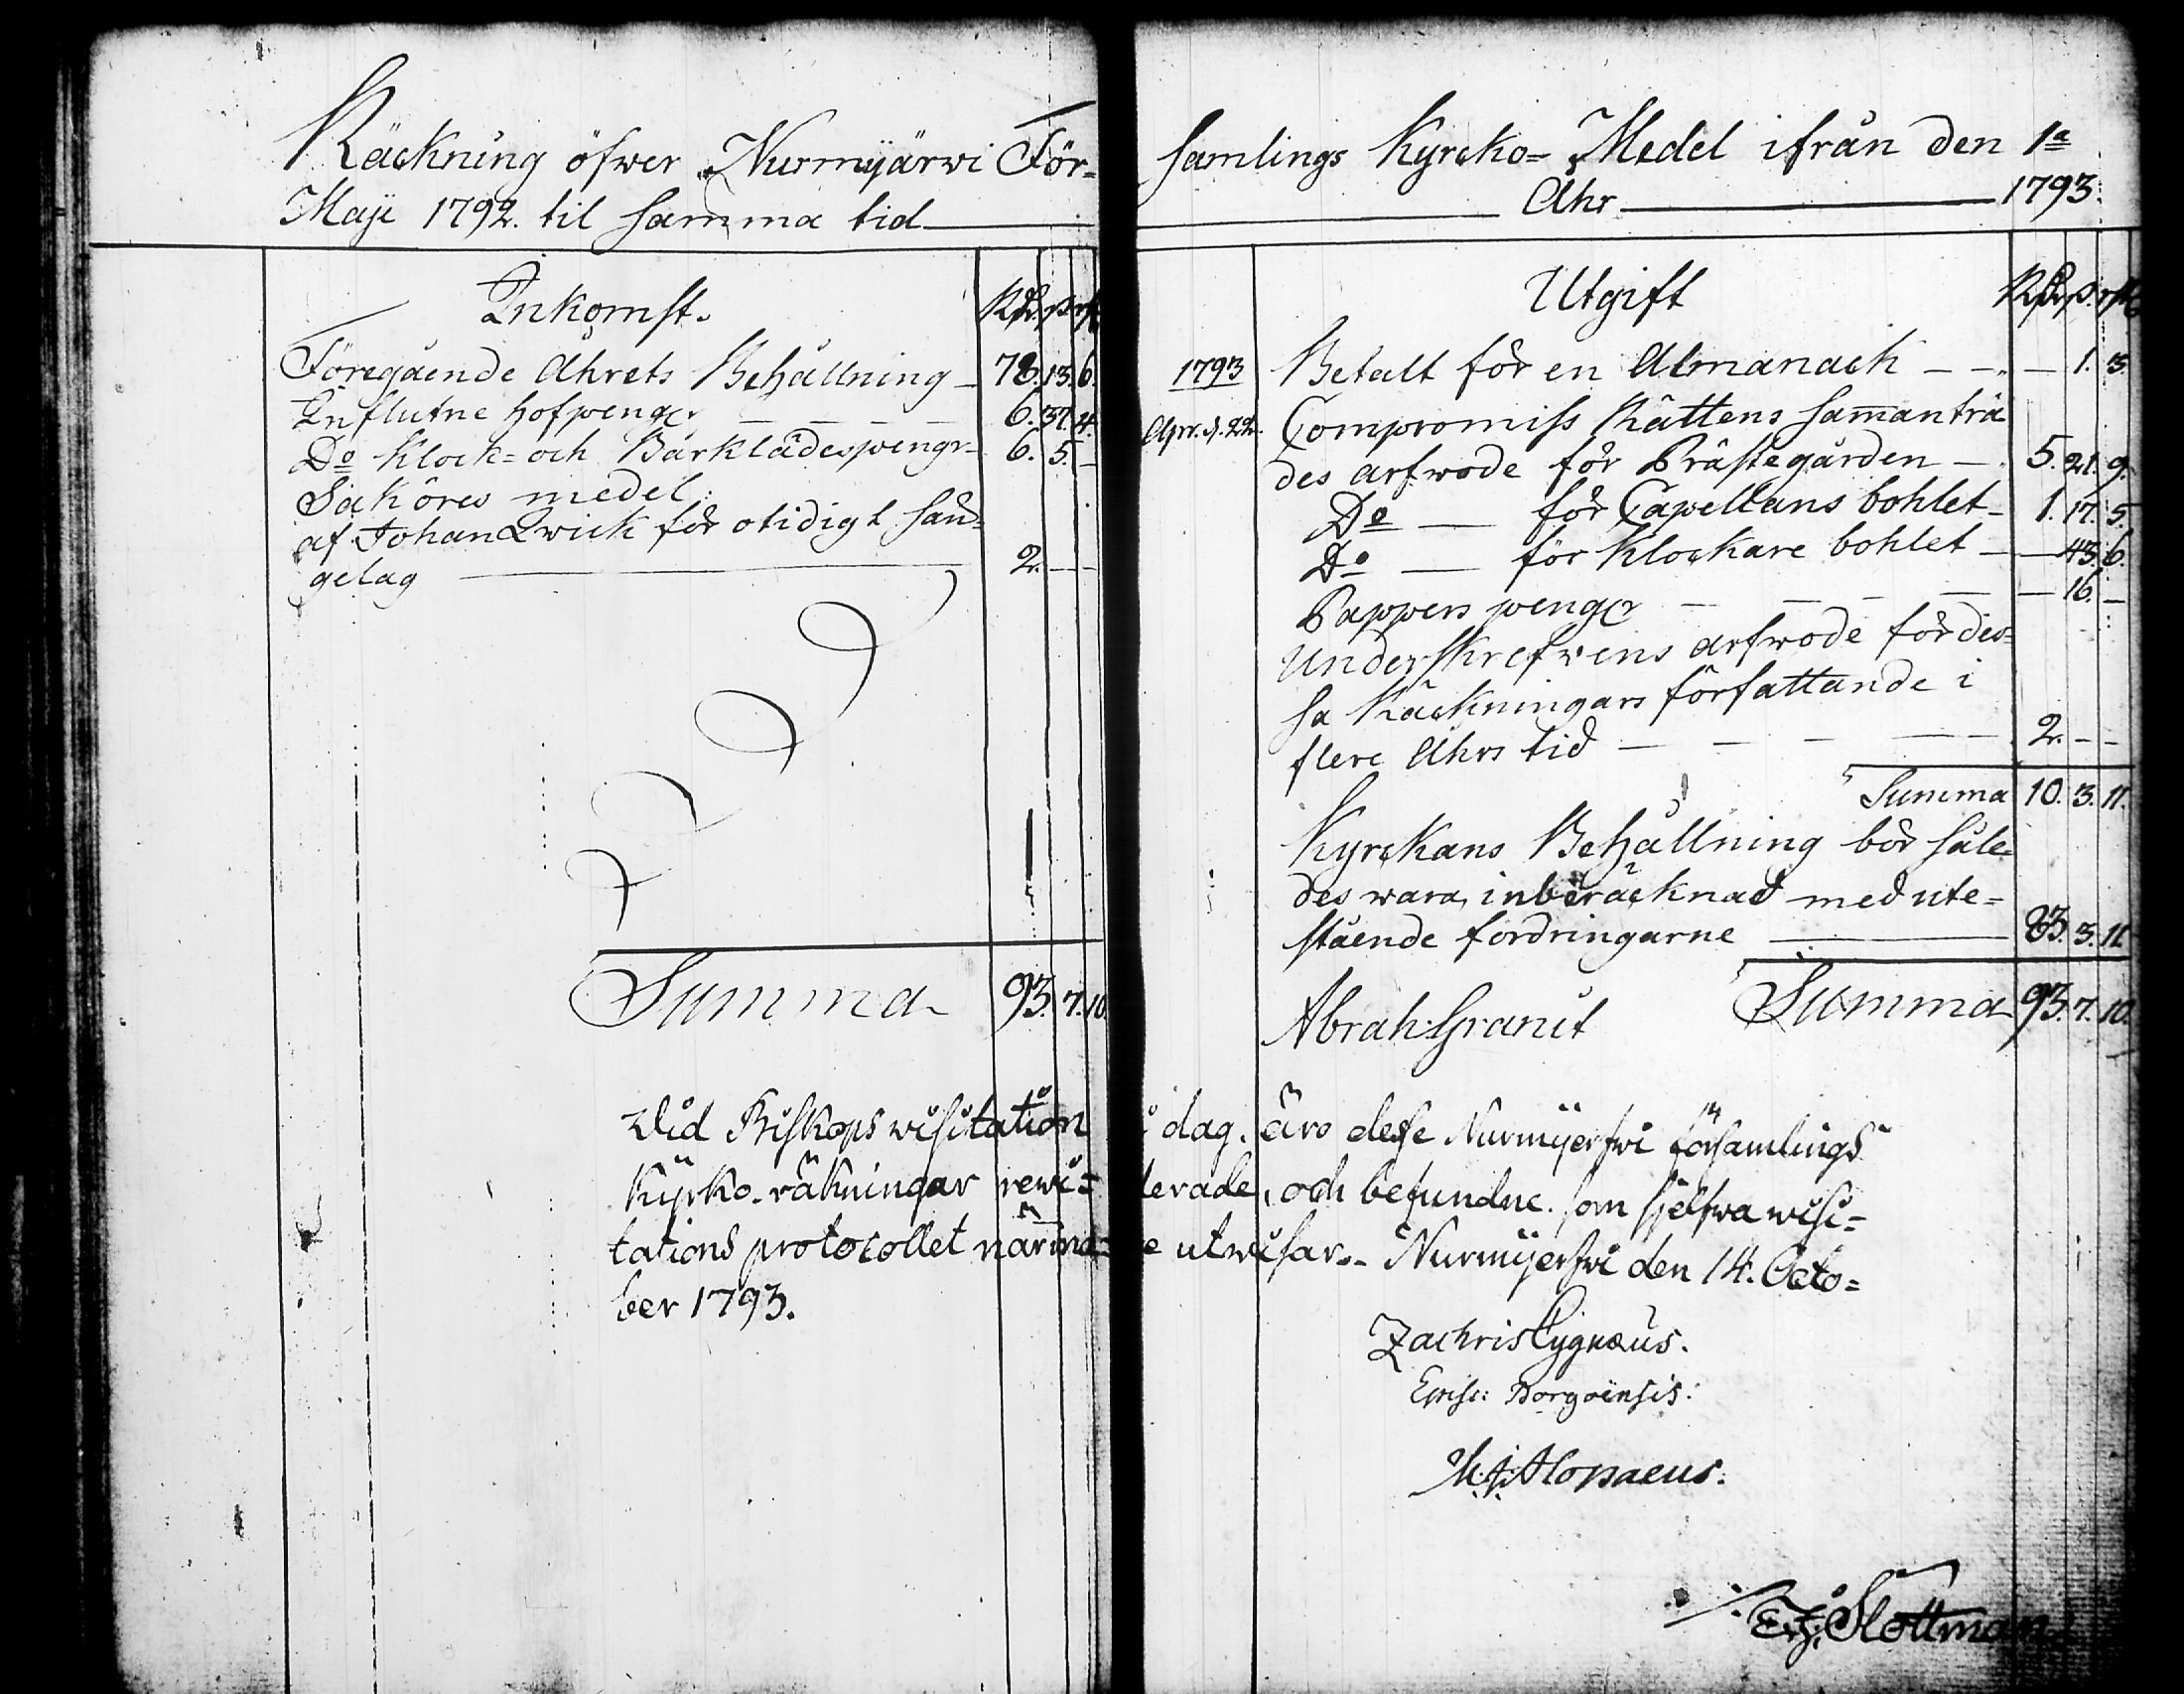 Räckning öfwer Nurmijärwi För-
Maji 1792. til samma tid
Inkomst.
Föregående Ahrets Behållning 78. 13. 6.
Influtne Hofpenger 6. 37. 4.
Do Klock- och Bårklädespengr 6. 5. -
Saköres medel:
af Johan Qwick för otidigt sån-
gelag 2. - -
Summa 93. 7. 10.
samlings Kyrcko-Medel ifrån den 1a
Ahr 1793.
Utgift
1793 Betalt för en Almanach - 1. 3.
Apr. d. 22. Compromiss Rättens samanträ
des arfwode för Prästegården 5. 21. 9.
Do för Capellans bohlet 1. 17. 5.
Do för Klockare bohlet - 43. 6.
Pappers penger - 16. -
Underskrefwens arfwode för des-
sa Räckningars författande i
flere Ahrs tid 2. - -
Summa 10. 3. 11.
Kyrckans Behållning bör såle-
des wara, inberäcknad med ute-
stående fordringarne 83. 3. 11.
Summa 93. 7. 10.
Abrah: Granit
Wid Biskops wisitation i dag, äro desse Nurmijerfwi församlings
Kyrko-räkningar rewiderade, och befundne som sjelfwa wisi-
tations protocollet närmare utwisar. Nurmijerfwi den 14. Octo-
ber 1793.
Zachris Cygnæus.
Episc: Borgoënsis.
M. J. Alopaeus.
Slottman